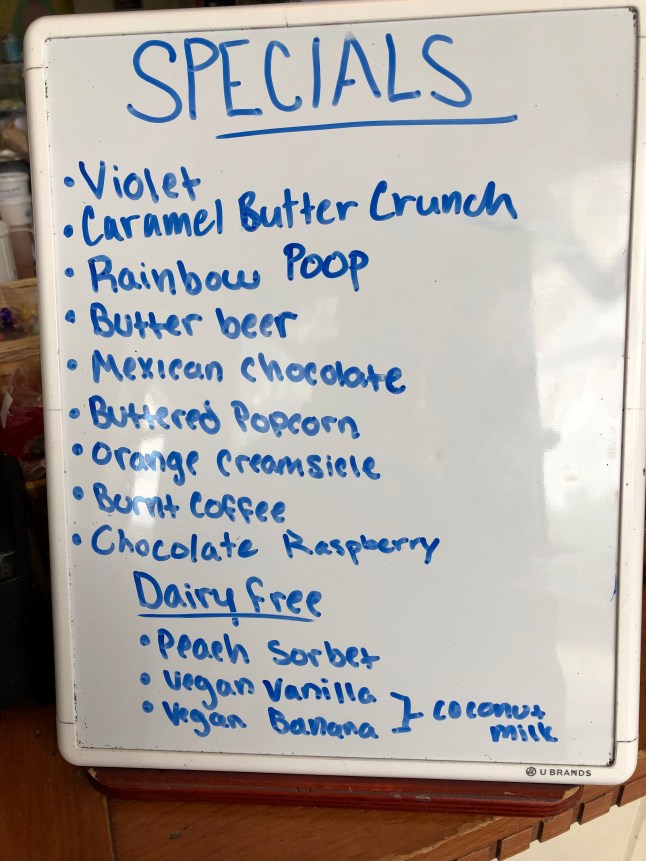 SPECIALS
• Violet
• Caramel Butter Crunch
• Rainbow Poop
• Butter beer
• Mexican Chocolate
• Buttered Popcorn
• Orange Creamsicle
• Burnt Coffee
• Chocolate Raspberry
Dairy free
• Peach Sorbet
• Vegan Vanilla
• Vegan Banana } coconut
milk
U BRANDS